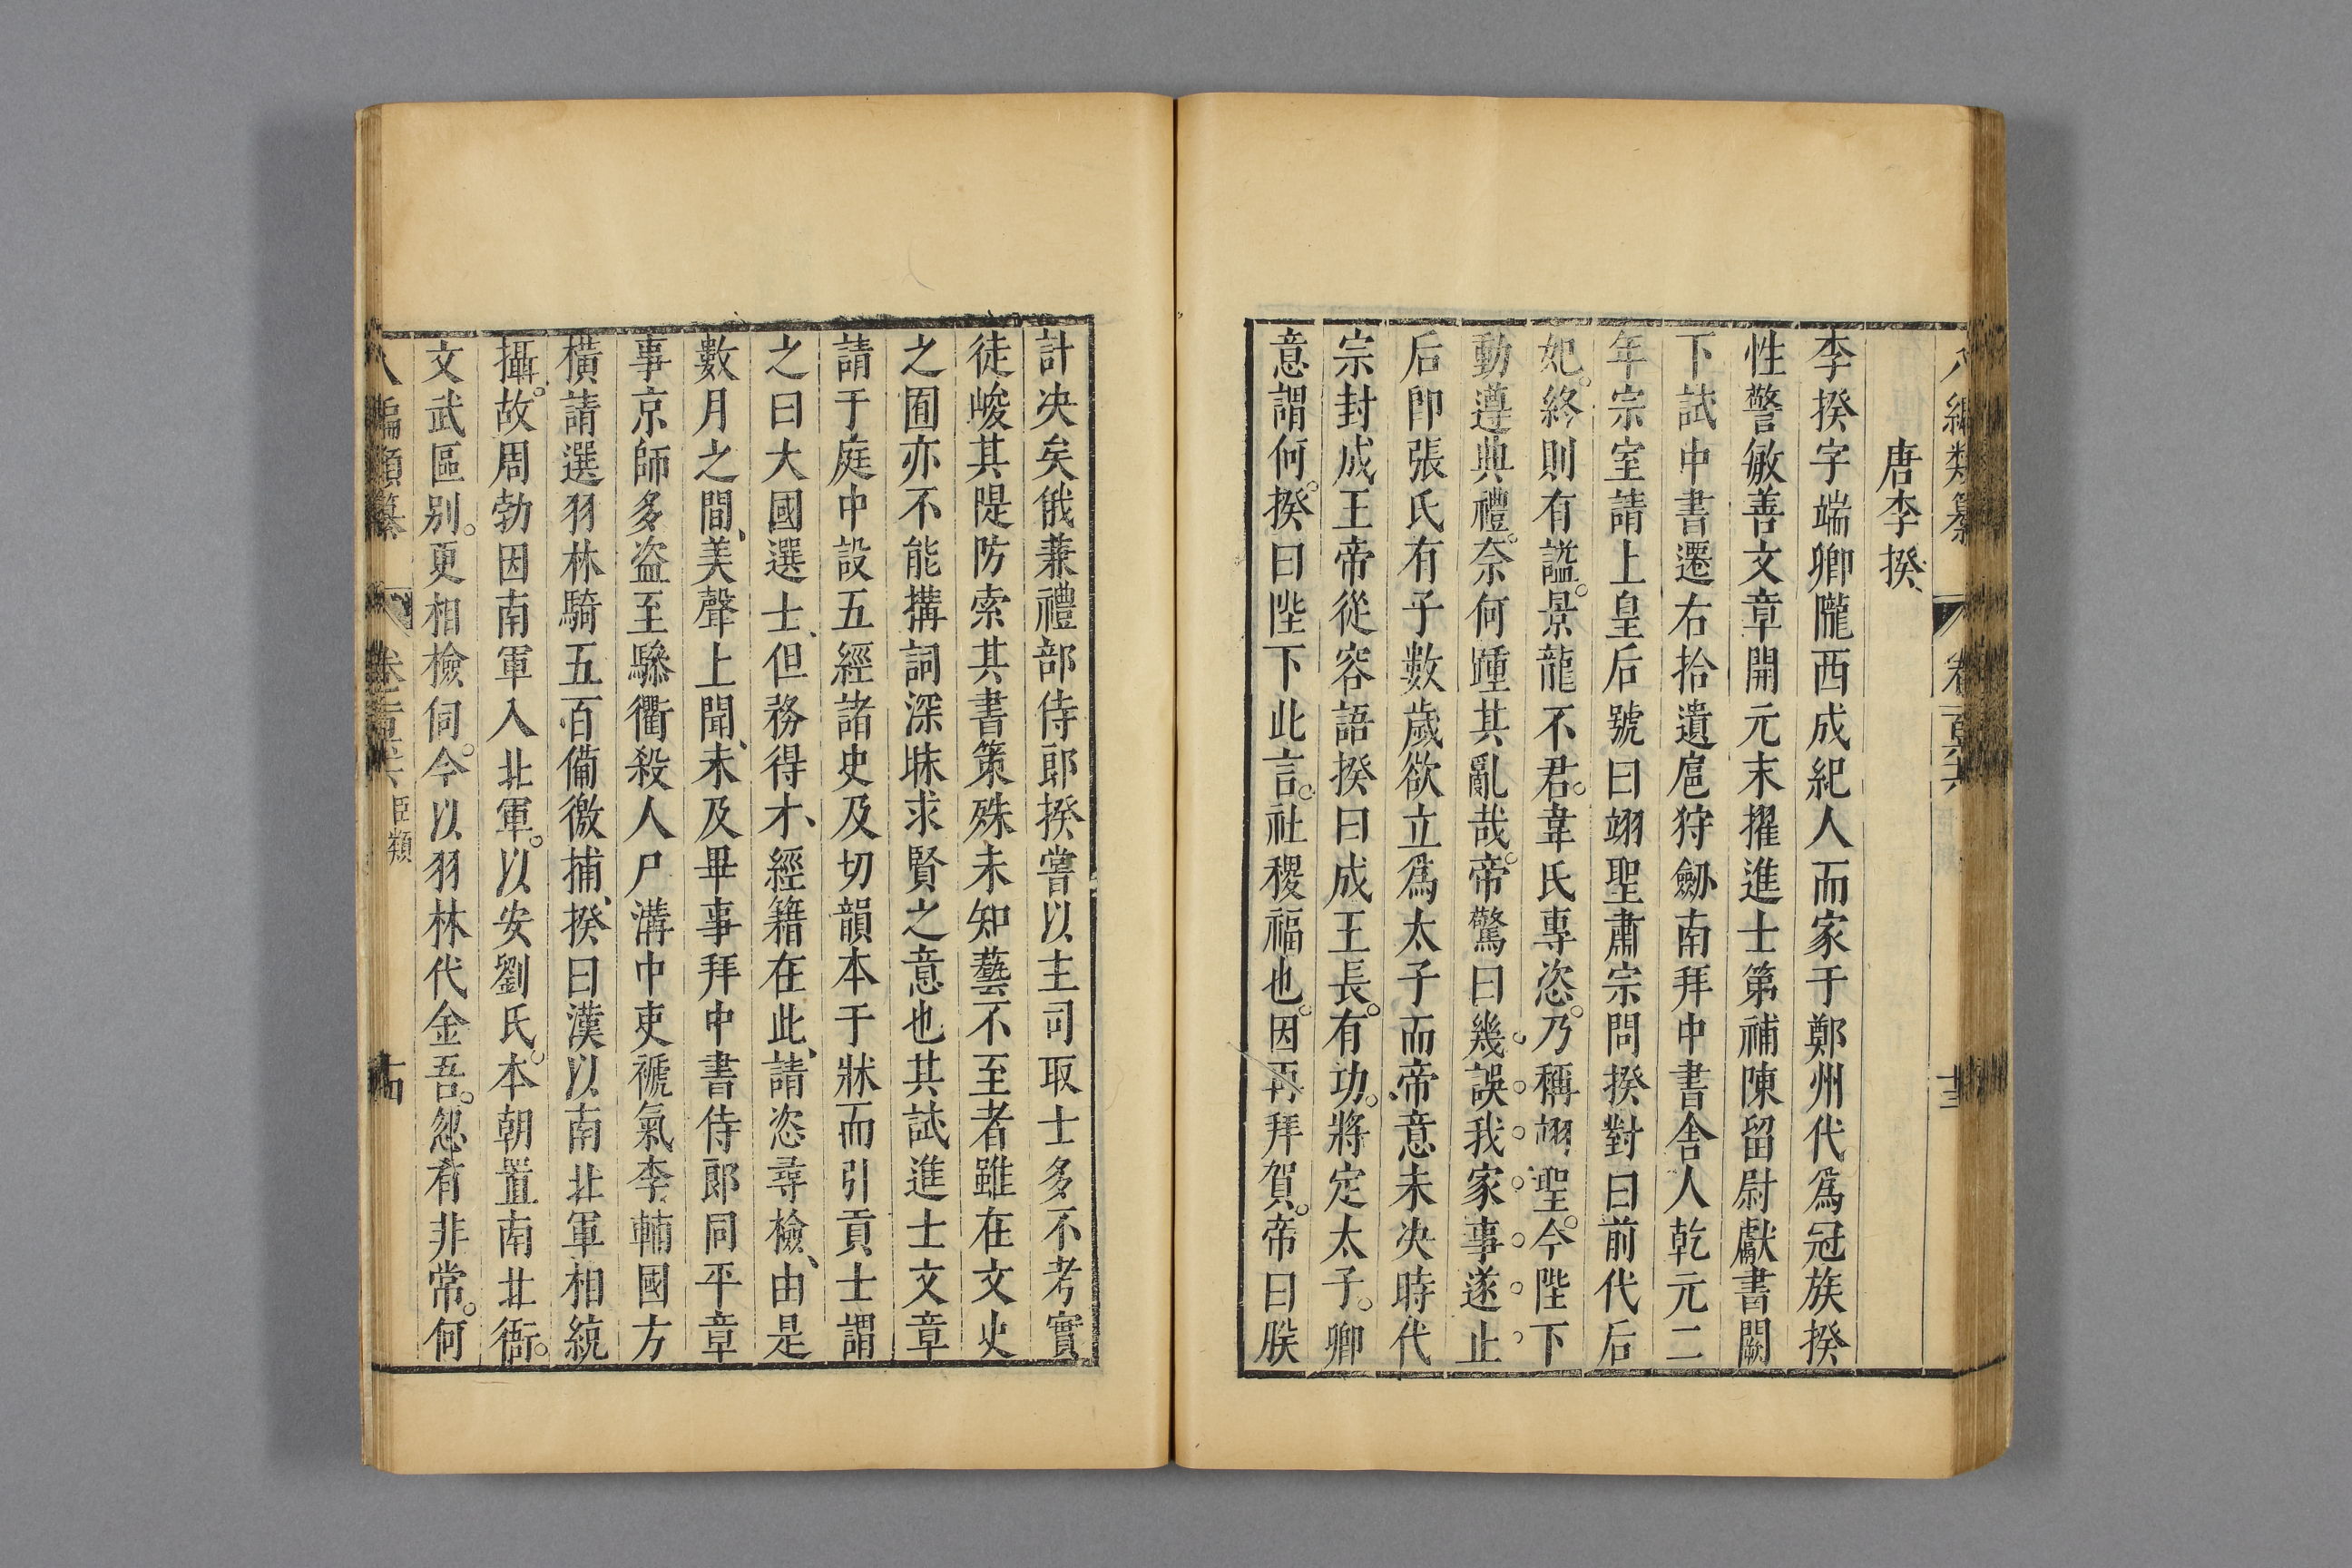 八編類纂 卷一百六 十三
唐李揆
李揆字端卿隴西成紀人而家于鄭州代爲冠族揆
性警敏善文章開元末擢進士第補陳留尉獻書闕
下試中書遷右拾遺扈狩劒南拜中書舎人乾元二
年宗室請上皇后號曰翊聖肅宗問揆對曰前代后
妃。終則有謚。景龍不君。韋氏專恣。乃稱翊聖。今陛下
動遵典禮。奈何踵其亂哉。帝驚曰幾誤我家事遂止
后卽張氏有子數歲欲立爲太子而帝意未决時代
宗封成王帝從容語揆曰成王長。有功。將定太子。卿
意謂何。揆曰陛下此言。社稷福也。因再拜賀。帝曰朕
計决矣俄兼禮部侍郎揆嘗以主司取士多不考實
徒峻其隄防索其書策殊未知藝不至者雖在文史
之囿亦不能搆詞深昧求賢之意也其試進士文章
請于庭中設五經諸史及切韻本于牀而引貢士謂
之曰大國選士、但務得才、經籍在此、請恣尋檢、由是
數月之間、美聲上聞、未及畢事拜中書侍郎同平章
事京師多盗至驂衢殺人尸溝中吏褫氣李輔國方
橫請選羽林騎五百備徼捕、揆曰漢以南北軍相統
攝。故周勃因南軍入北軍。以安劉氏。本朝置南北衙。
文武區别。更相檢伺。今以羽林代金吾。忽有非常。何
八編類纂 卷一百六 臣類 十四